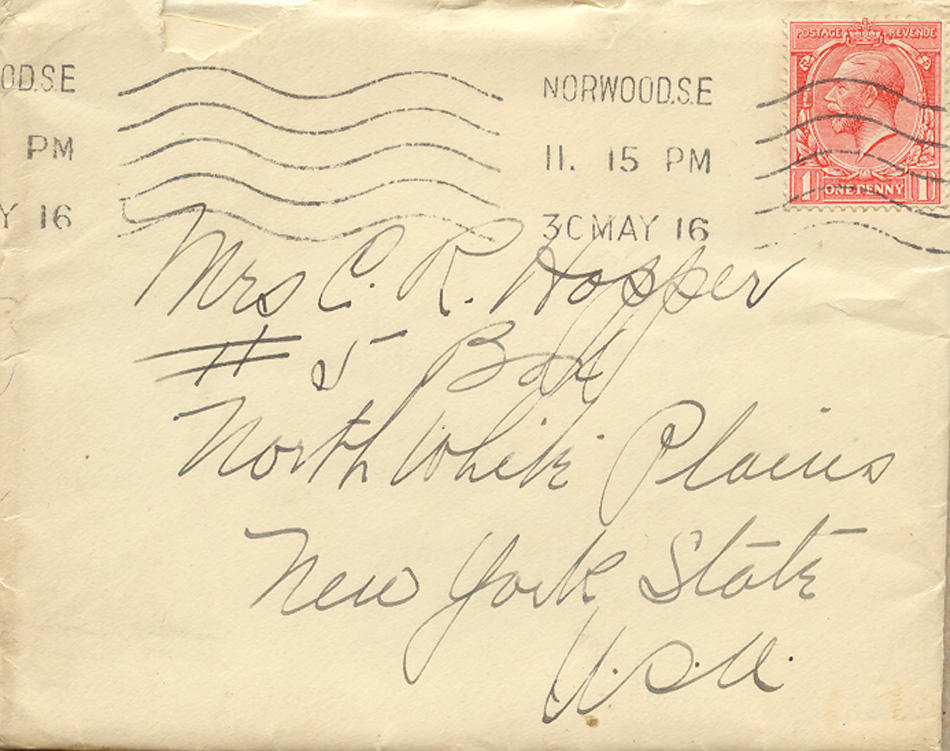 OD.S.E
PM
Y 16
NORWOOD.S.E
11. 15 PM
30 MAY 16
POSTAGE REVENUE
1 ONE PENNY 1
Mrs C. R. Hopper
# 5 Box
North White Plains
New York State
U.S.A.